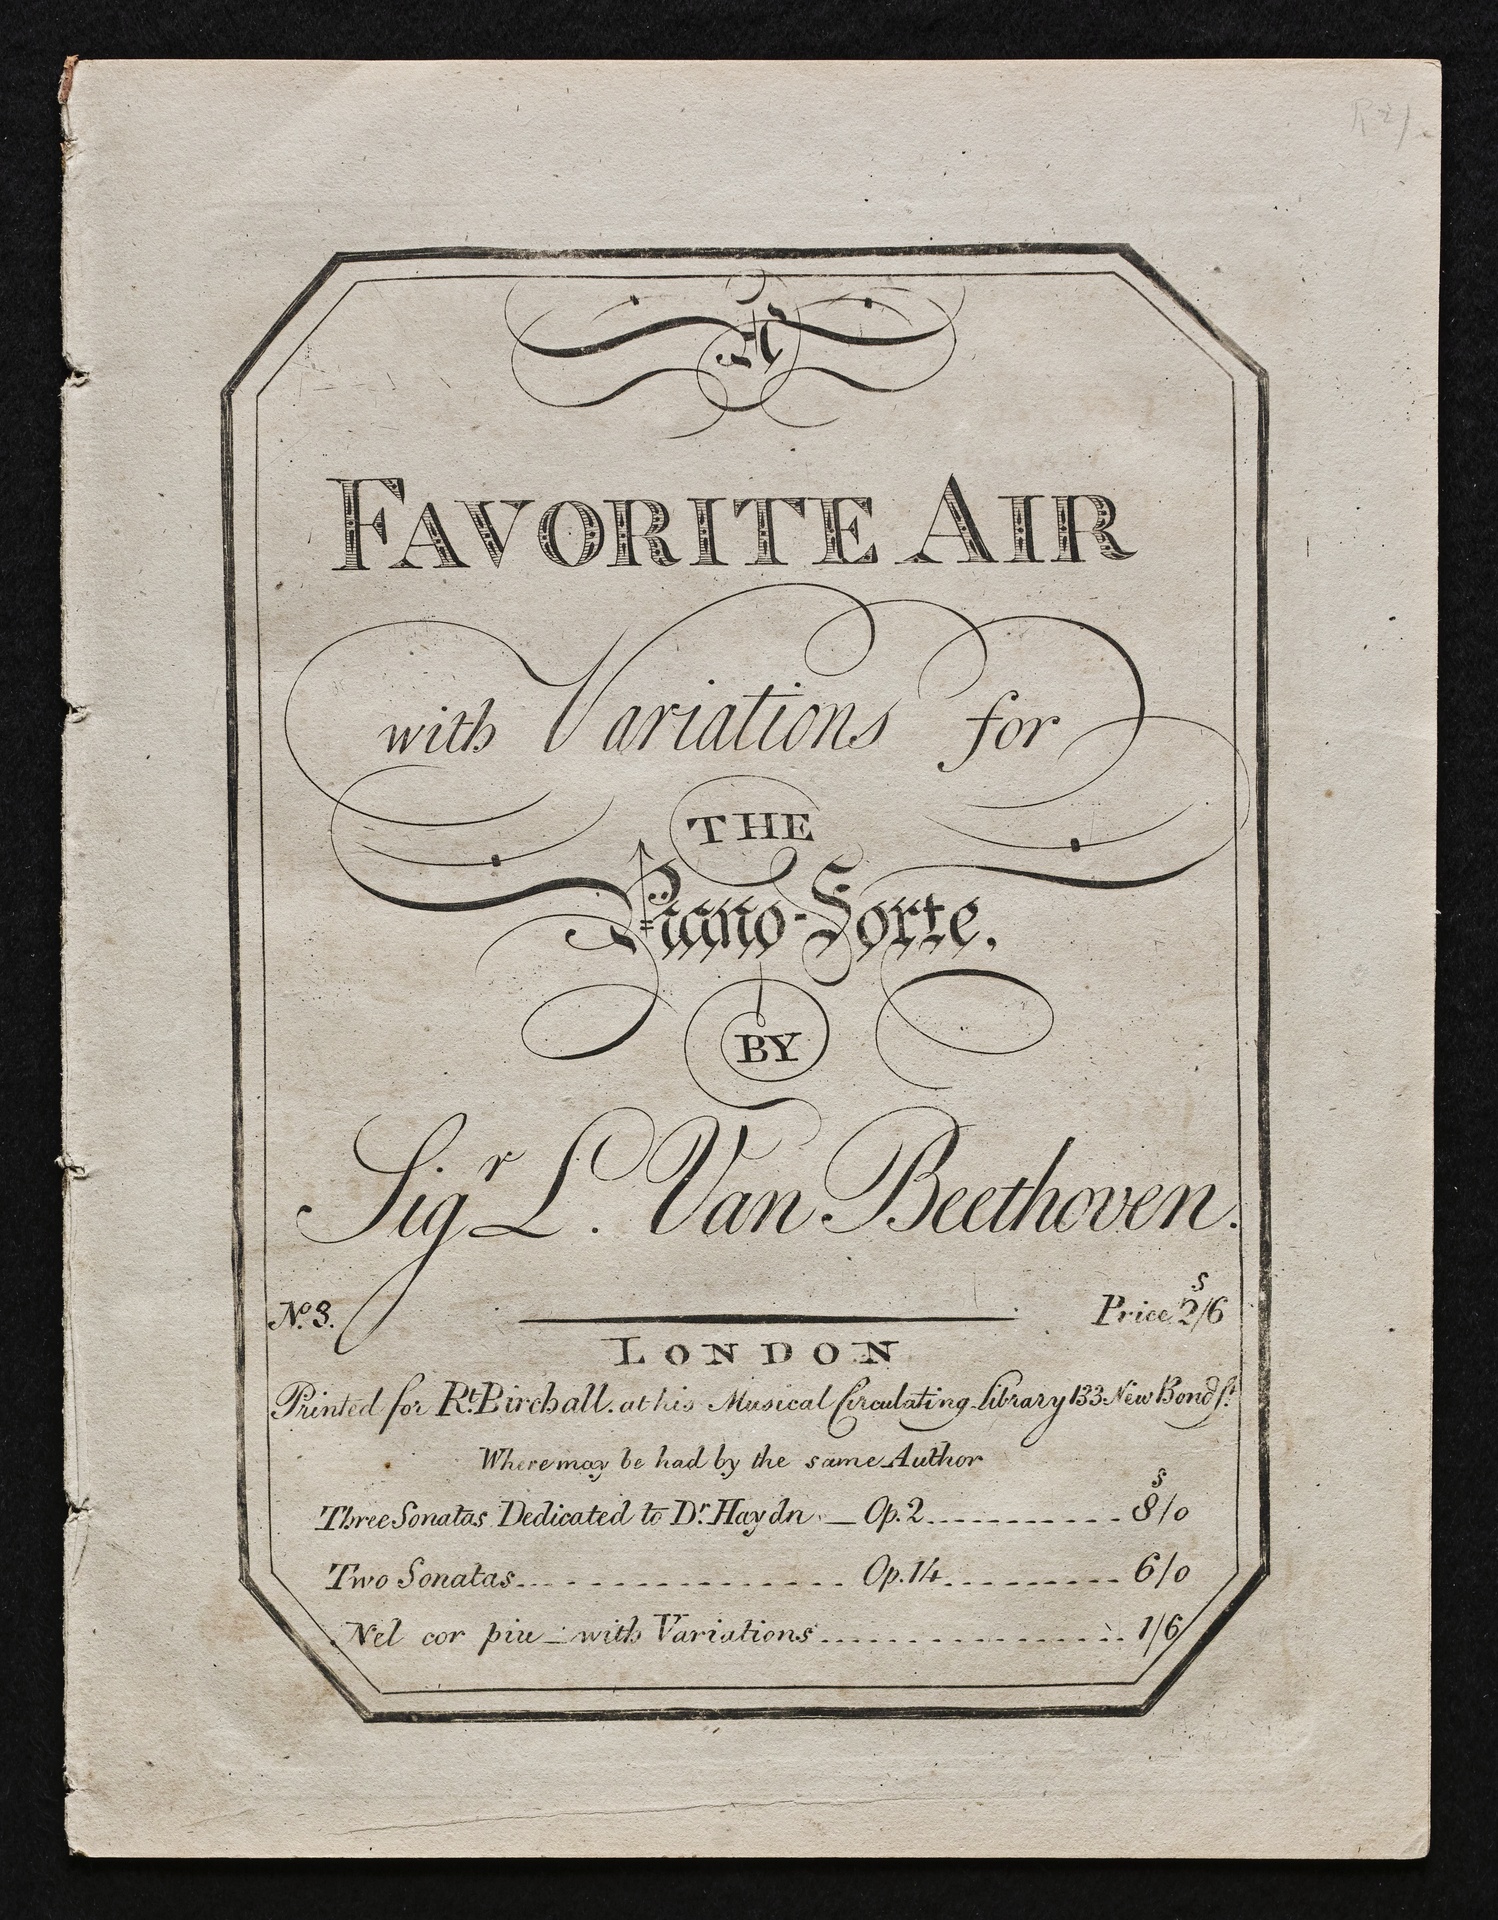 A
FAVORITE AIR
with Variations for
THE
Piano-Forte.
BY
Sigr. L. Van Beethoven.
No. 3. Price 2s/6
LONDON
Printed for Rt. Birchall. at his Musical Circulating Library 133 New Bond St.
Where may be had by the same Author
Three Sonatas Dedicated to Dr. Haydn — Op. 2 ........... 8s/0
Two Sonatas ................. Op. 14 .......... 6/0
Nel cor piu — with Variations ................ 1/6